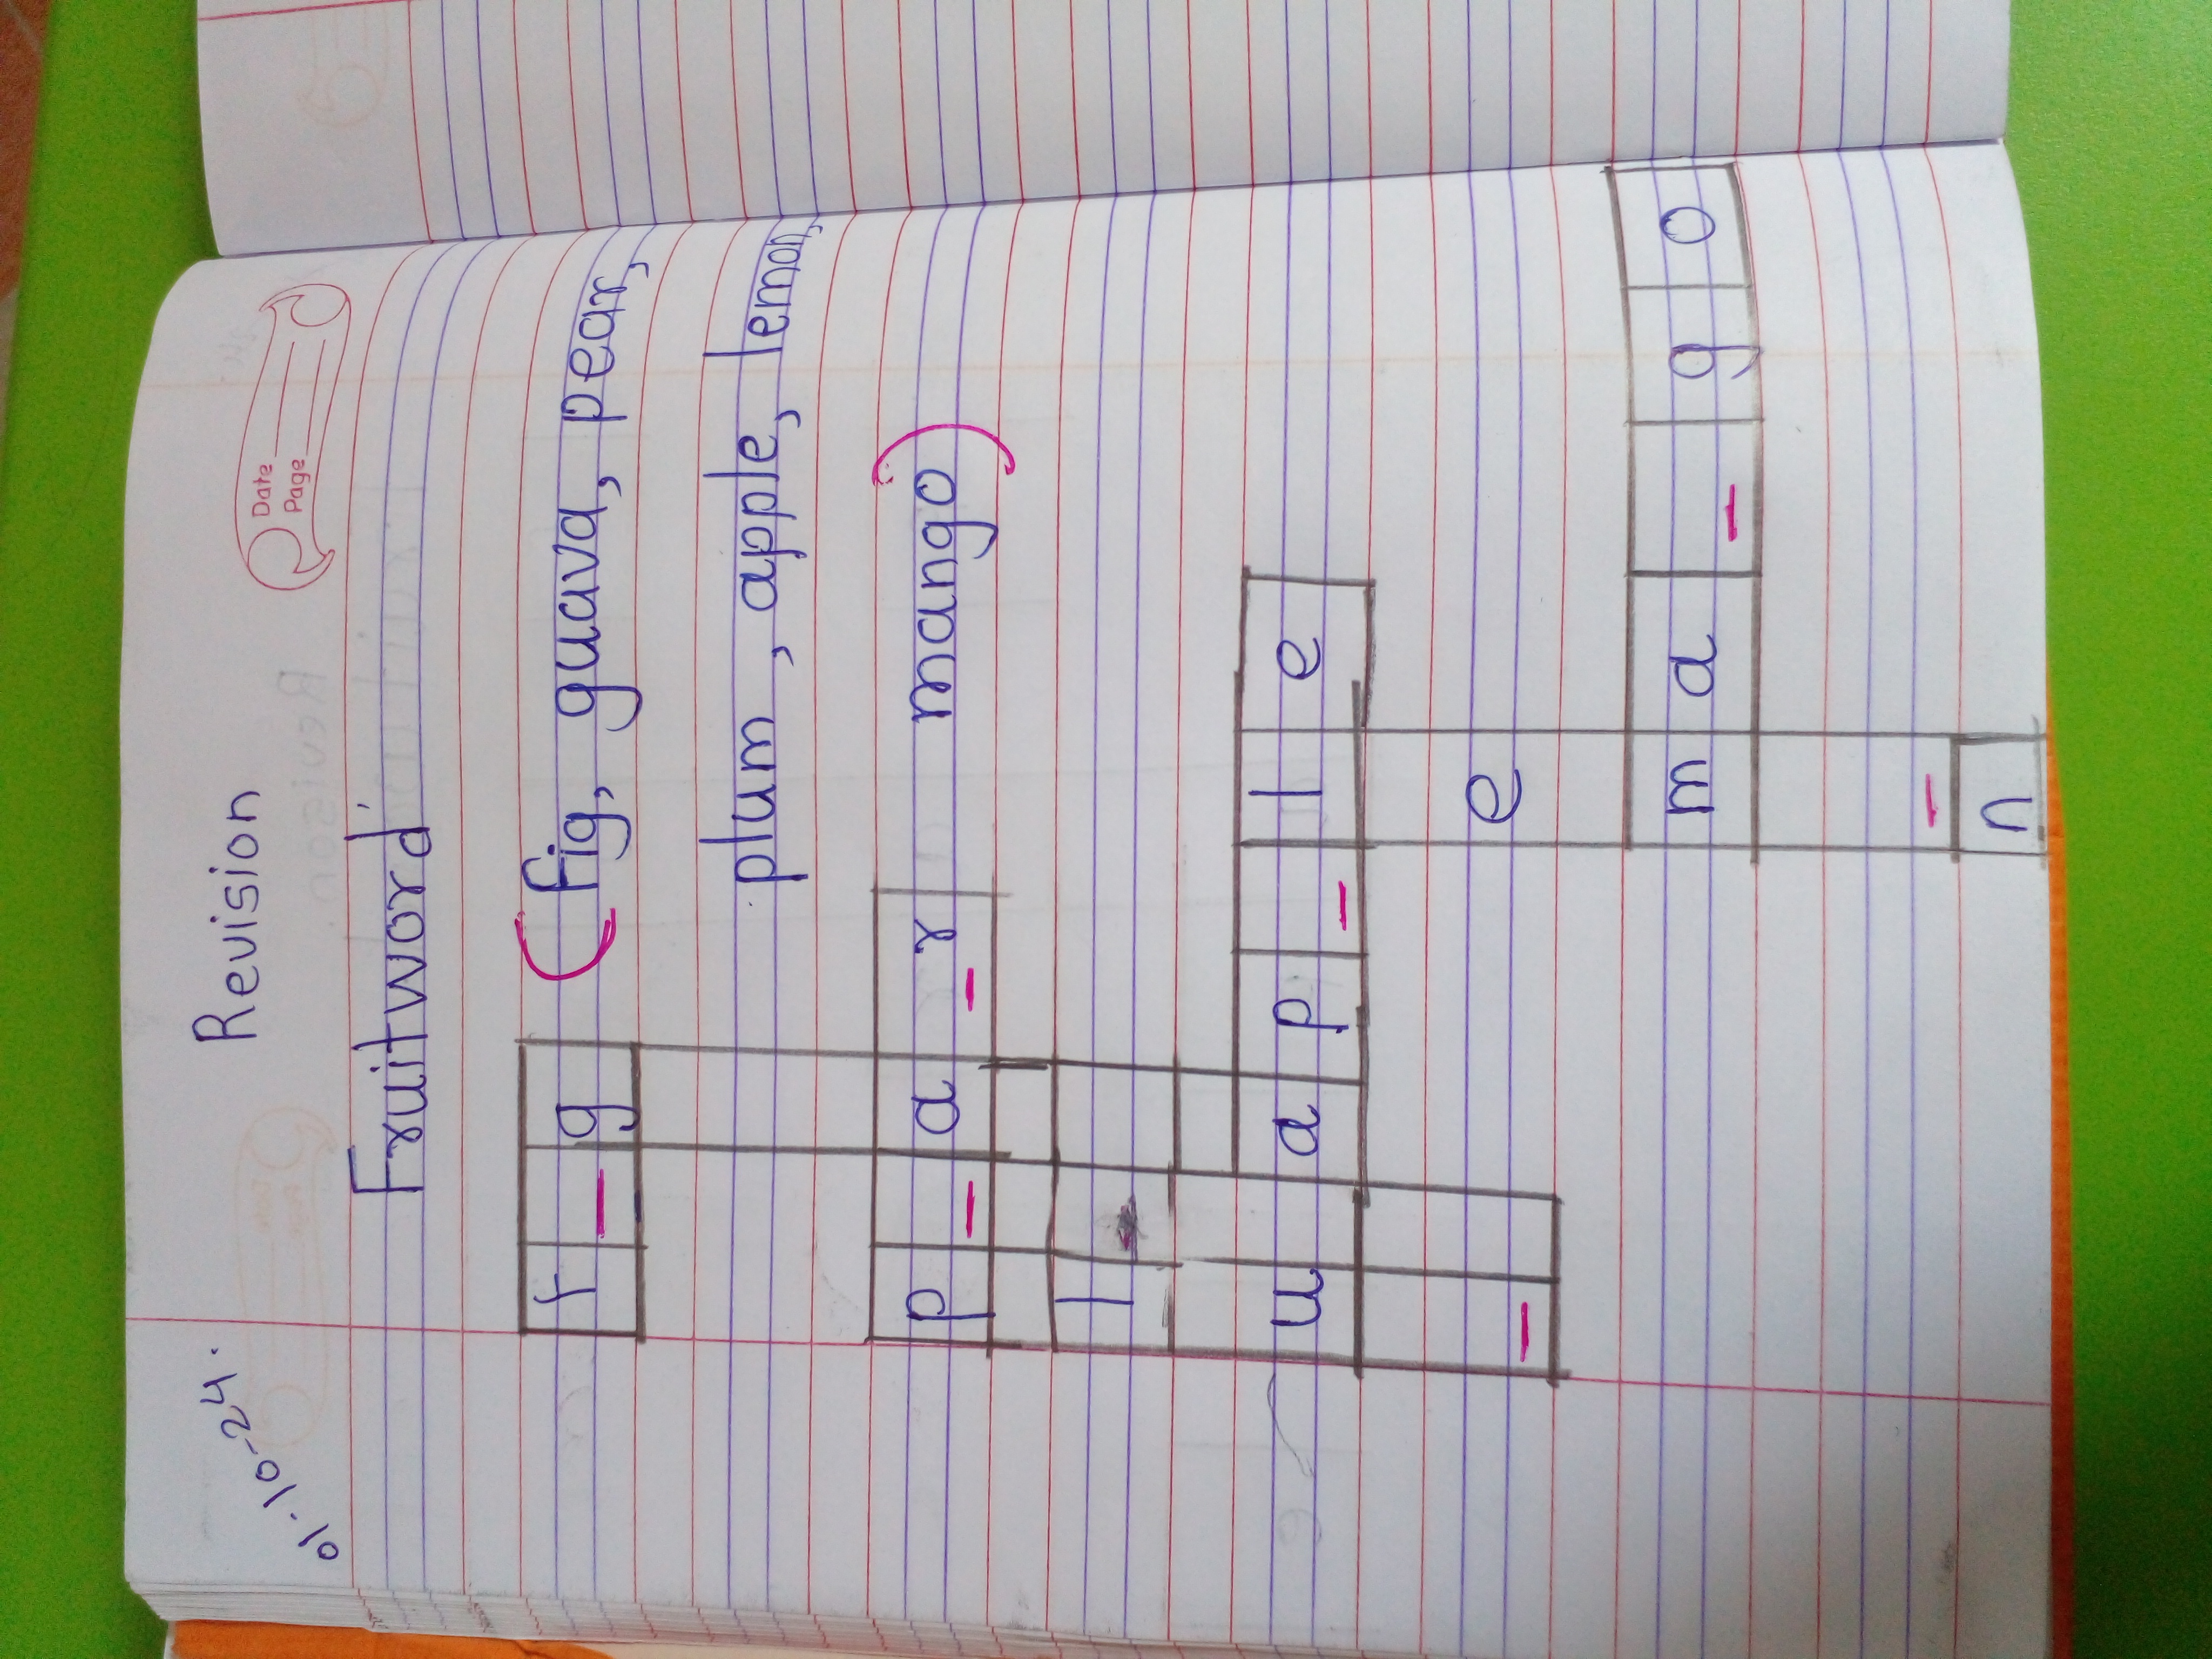 01-10-24.
Revision
Date
Page
Fruitword
(fig, guava, pear,
plum, apple, lemon,
mango)
f _ g
p _ a _ r
l
u a p _ l e
_ e
m a _ g o
_
n